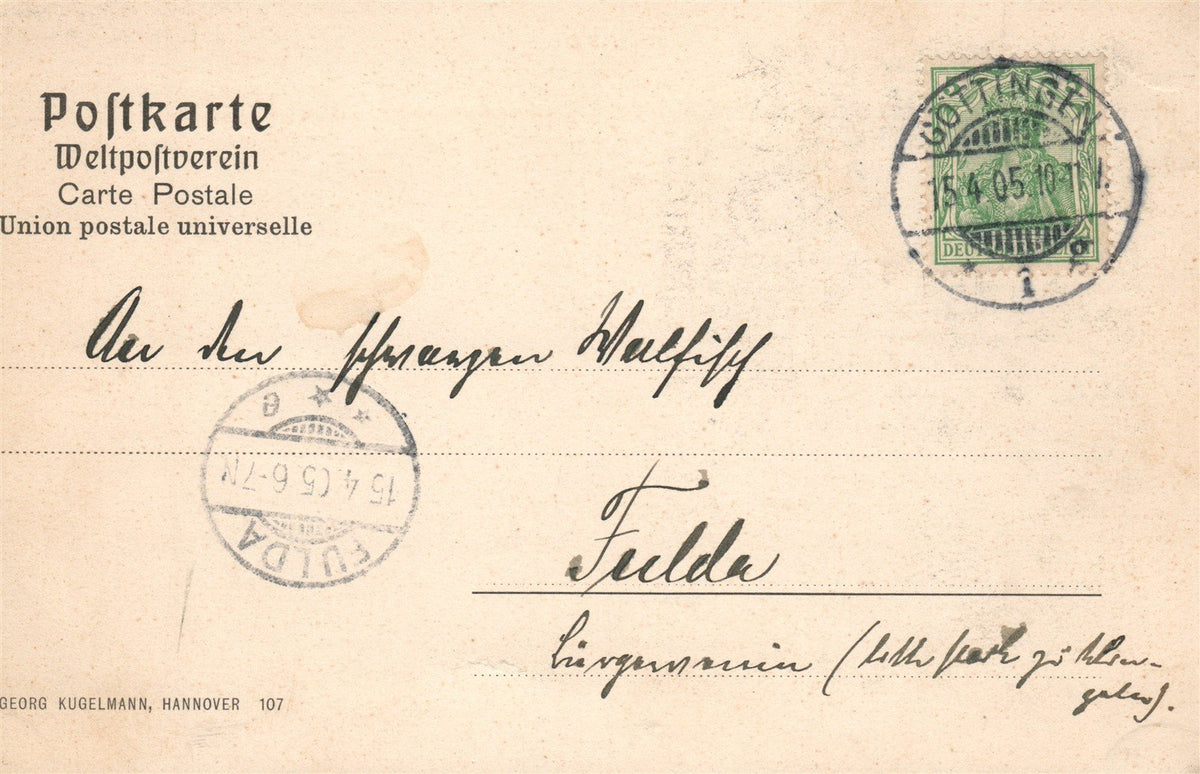 Poſtkarte
Weltpoſtverein
Carte Postale
Union postale universelle
GÖTTINGEN
15.4.05.10-11V.
* 1
An den schwarzen Walfisch
FULDA
15.4.05 6-7N
Fulda
Bürgerverein (bitte stark zu klin-
geln).
GEORG KUGELMANN, HANNOVER 107